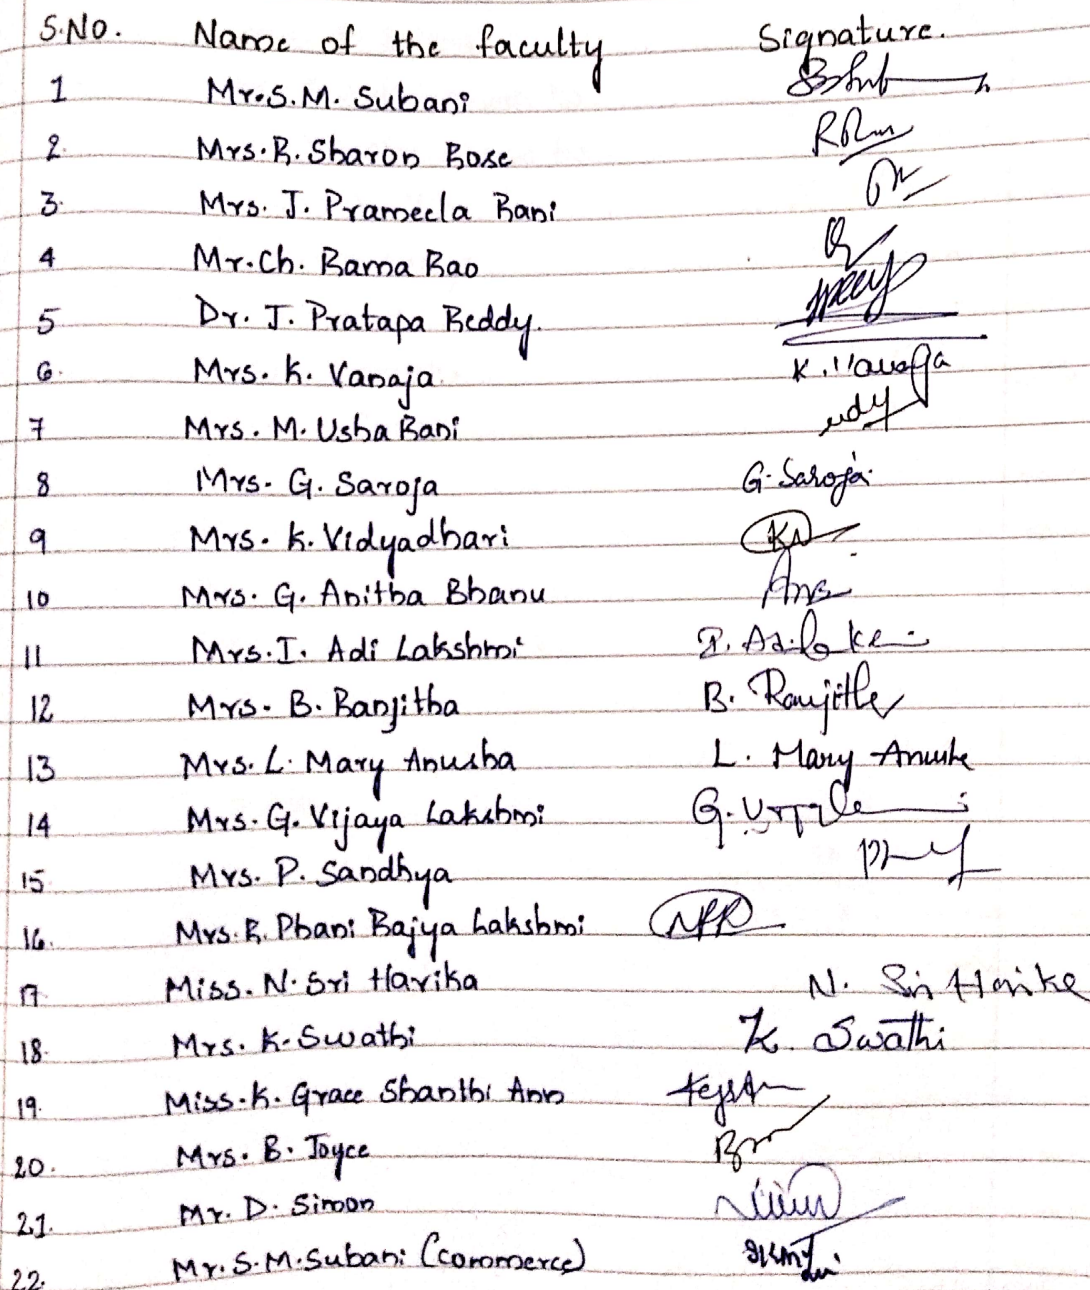 S.No. Name of the faculty Signature.
1 Mr.S.M. Subani
2. Mrs.R. Sharon Rose
3. Mrs. J. Prameela Rani
4 Mr.Ch. Rama Rao
5 Dr. J. Pratapa Reddy.
6. Mrs. K. Vanaja K. Vanaja
7 Mrs. M. Usha Rani
8 Mrs. G. Saroja G. Saroja
9 Mrs. K. Vidyadhari
10 Mrs. G. Anitha Bhanu
11 Mrs.I. Adi Lakshmi
12 Mrs. B. Ranjitha B. Ranjitha
13 Mrs. L. Mary Anusha L. Mary Anusha
14 Mrs. G. Vijaya Lakshmi
15 Mrs. P. Sandhya
16. Mrs.R. Phani Rajya Lakshmi
17 Miss. N. Sri Harika N. Sri Harika
18. Mrs. K. Swathi K. Swathi
19. Miss.K. Grace Shanthi Ann
20. Mrs. B. Joyce
21. Mr. D. Simon
22. Mr. S.M.Subani (Commerce)